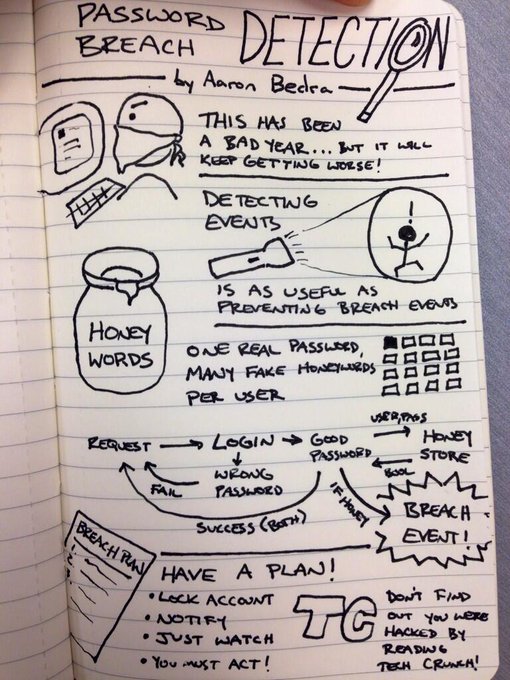 PASSWORD
BREACH
DETECTION
by Aaron Bedra
THIS HAS BEEN
A BAD YEAR... BUT IT WILL
KEEP GETTING WORSE!
DETECTING
EVENTS
!
IS AS USEFUL AS
PREVENTING BREACH EVENTS
HONEY
WORDS
ONE REAL PASSWORD,
MANY FAKE HONEYWORDS
PER USER
REQUEST → LOGIN → GOOD PASSWORD
USER, PASS
HONEY
STORE
BOOL
WRONG
PASSWORD
FAIL
SUCCESS (BOTH)
IF HONEY
BREACH
EVENT!
BREACH PLAN
HAVE A PLAN!
• LOCK ACCOUNT
• NOTIFY
• JUST WATCH
• YOU MUST ACT!
TC
DON'T FIND
OUT YOU WERE
HACKED BY
READING
TECH CRUNCH!